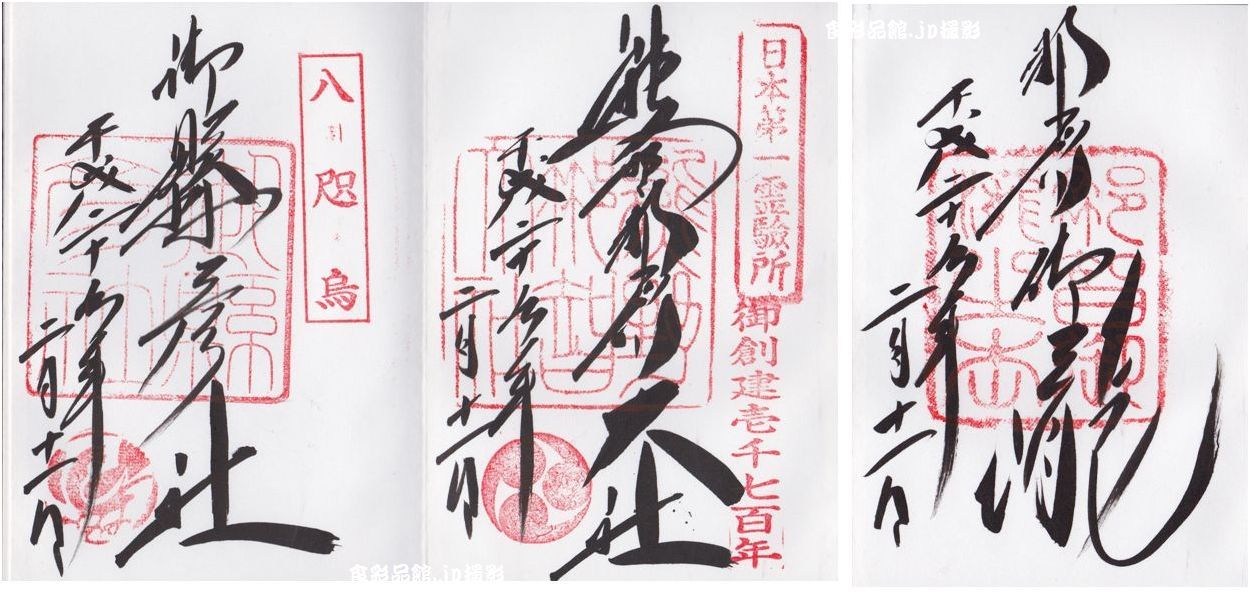 那智御瀧
平成二十九年
二月十一日
日本第一霊験所
御創建壱千七百年
熊野那智大社
平成二十九年
二月十一日
八咫烏
御縣彦社
平成二十九年
二月十一日
食彩品館.jp撮影
食彩品館.jp撮影